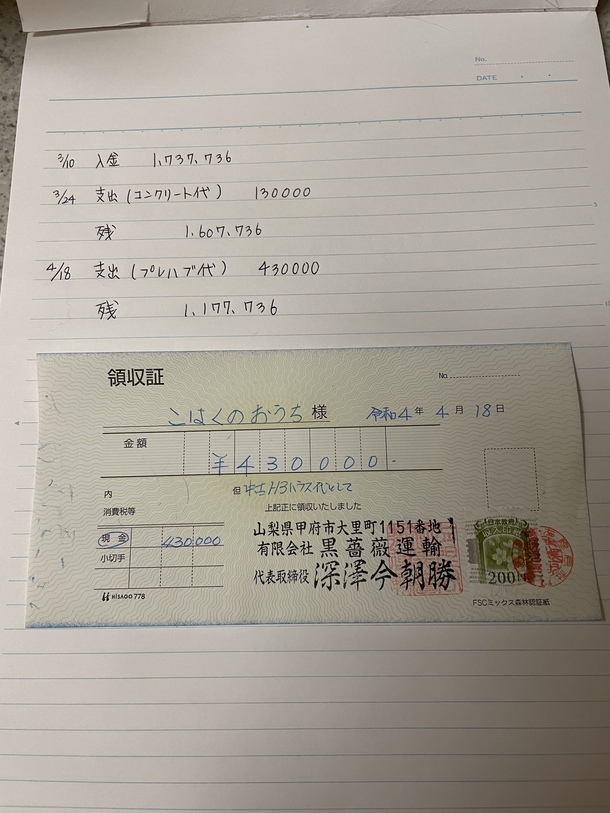 No.
DATE
3/10 入金 1,737,736
3/24 支出(コンクリート代) 130000
残 1,607,736
4/18 支出(プレハブ代) 430000
残 1,177,736
領収証
No.
こはくのおうち 様 令和4年 4月 18日
金額 ¥430000-
内 但 中古 ハウス代として
消費税等 上記正に領収いたしました
現金 430000
小切手
山梨県甲府市大里町1151番地1
有限会社 黒薔薇運輸
代表取締役 深澤今朝勝
日本政府
200円
HISAGO 778
FSCミックス森林認証紙
5
10